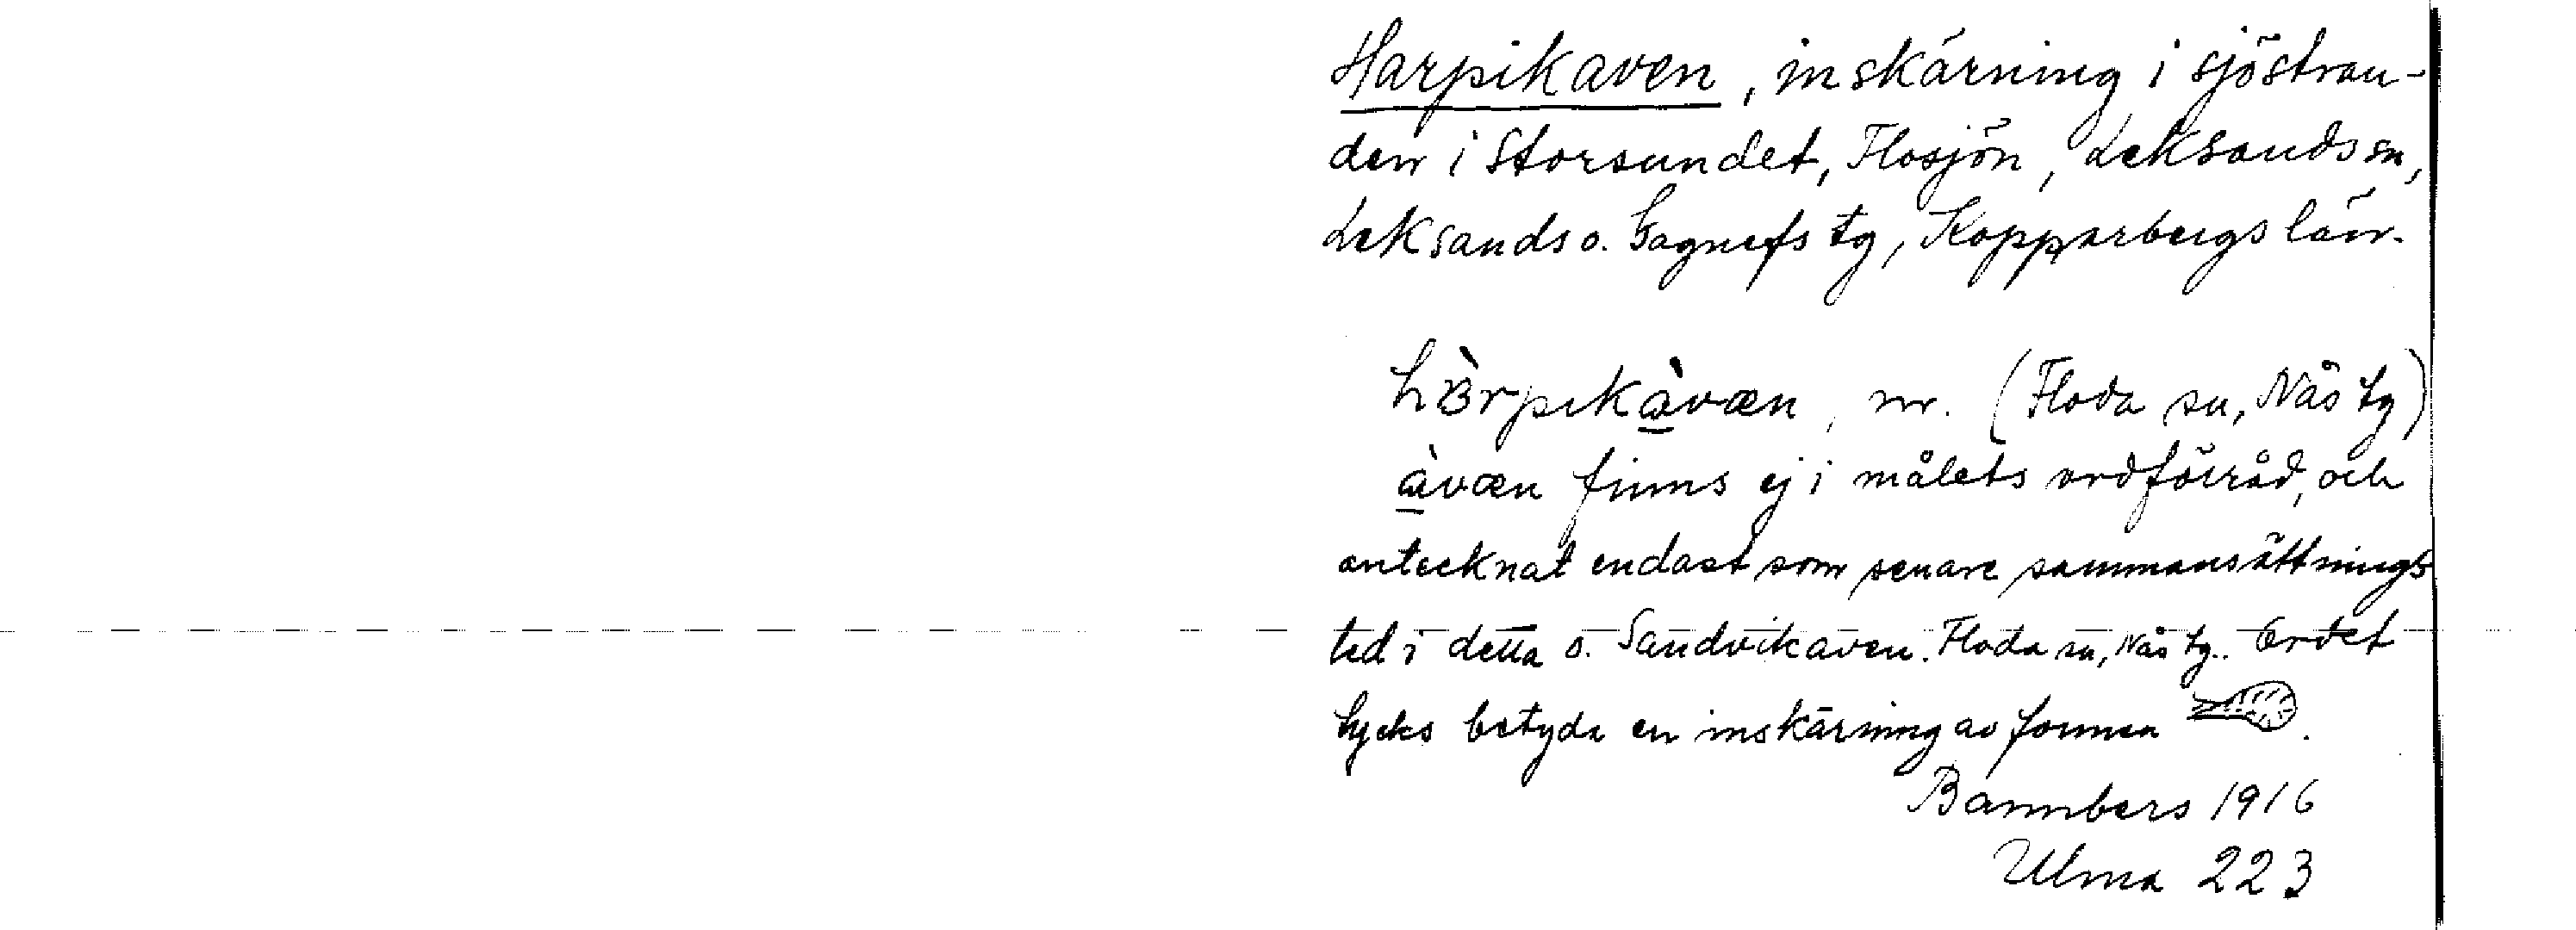 Harpikaven, inskärning i sjöstran-
den i Storsundet, Flosjön, Leksands sn,
Leksands o. Gagnefs tg, Kopparbergs län.
hàrpikàvæn, m. (Floda sn, Nås tg)
àvæn finns ej i målets ordförråd, och
antecknat endast som senare sammansättnings
led i detta o. Sandvikaven. Floda sn, Nås tg.. Ordet
tycks betyda en inskärning av formen .
Bannbers 1916
Ulma 223